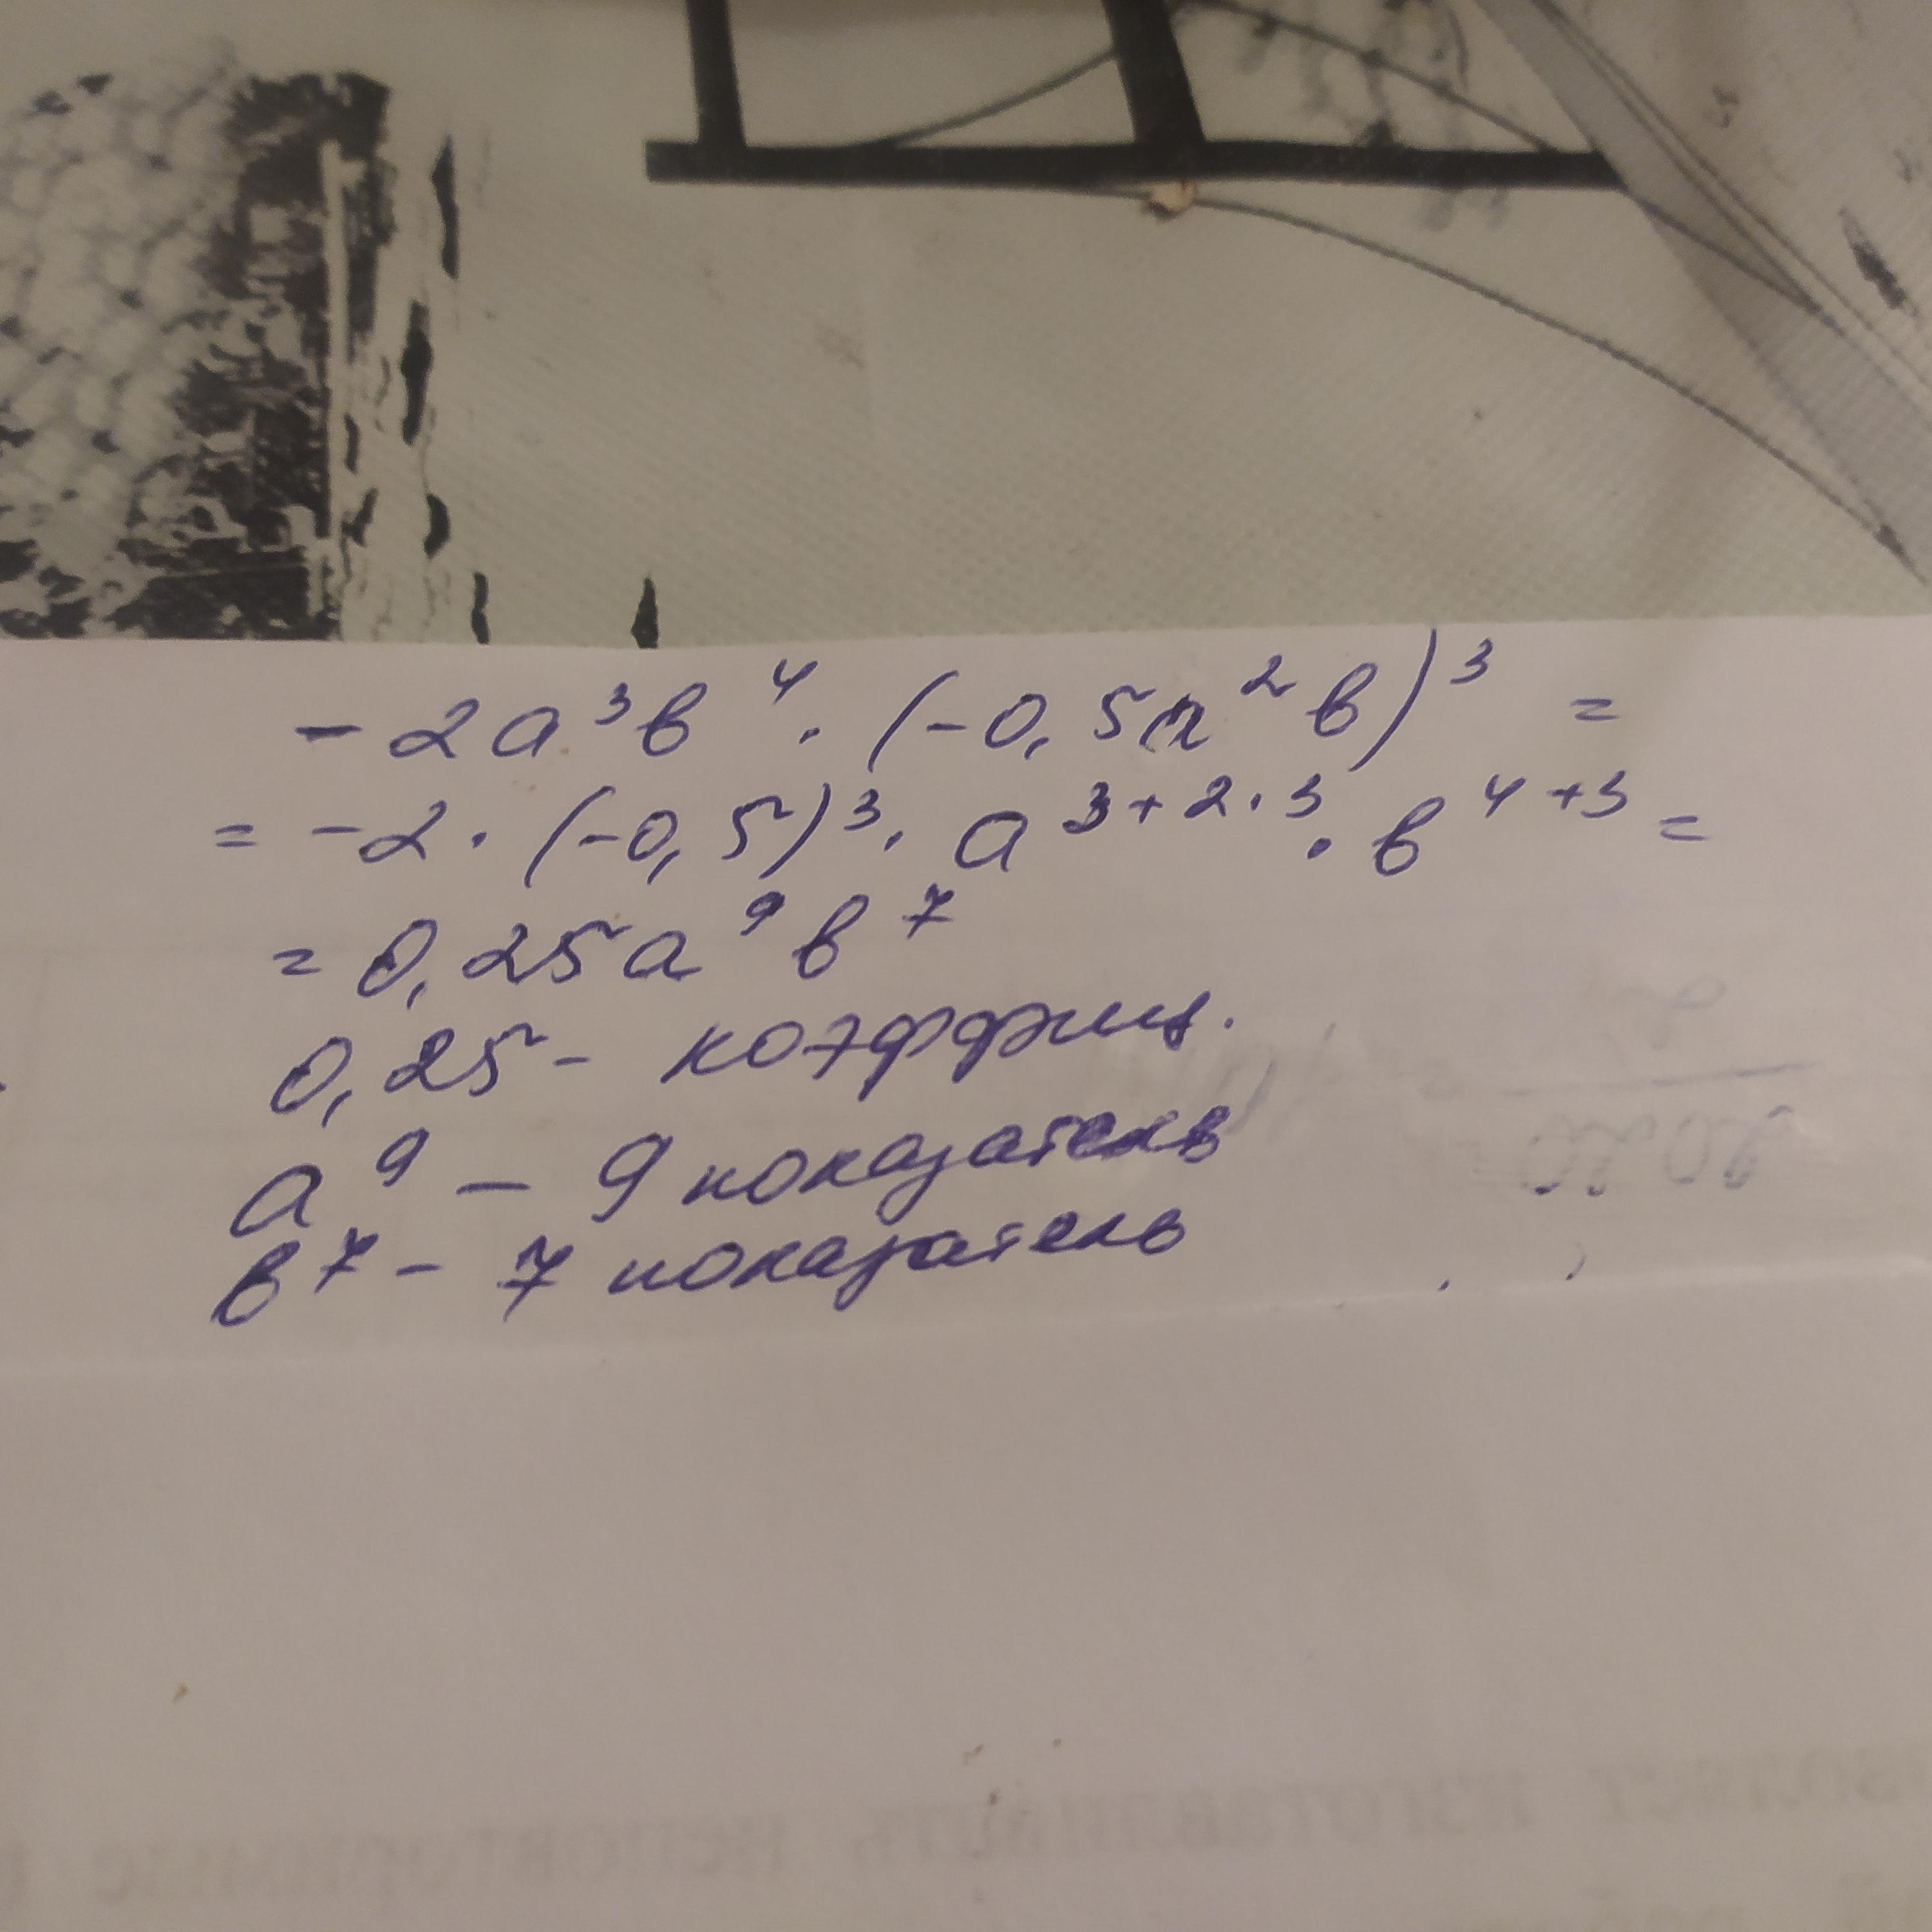 -2a³b⁴·(-0,5a²b)³ =
= -2·(-0,5)³·a³⁺²·³·b⁴⁺³ =
= 0,25a⁹b⁷
0,25 - коэффиц.
a⁹ - 9 показатель
b⁷ - 7 показатель